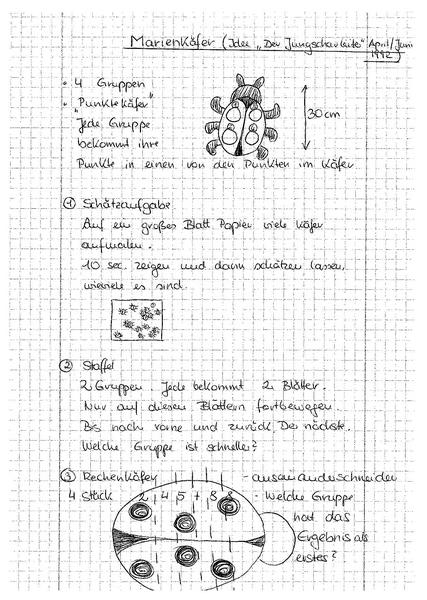 Marienkäfer (Idee "Der Jungscharleiter" April/Juni 1992)
• 4 Gruppen
• "Punktekäfer"
Jede Gruppe
bekommt ihre
Punkte in einen von den Punkten im Käfer
30 cm
① Schätzaufgabe
Auf ein großes Blatt Papier viele Käfer
aufmalen.
10 sec. zeigen und dann schätzen lassen,
wieviele es sind.
② Staffel
2 Gruppen. Jede bekommt 2 Blätter.
Nur auf diesen Blättern fortbewegen.
Bis nach vorne und zurück. Der nächste.
Welche Gruppe ist schneller?
③ Rechenkäfer
- auseinanderschneiden
4 Stück
2 4 5 + 8 8
- Welche Gruppe
hat das
Ergebnis als
erstes?